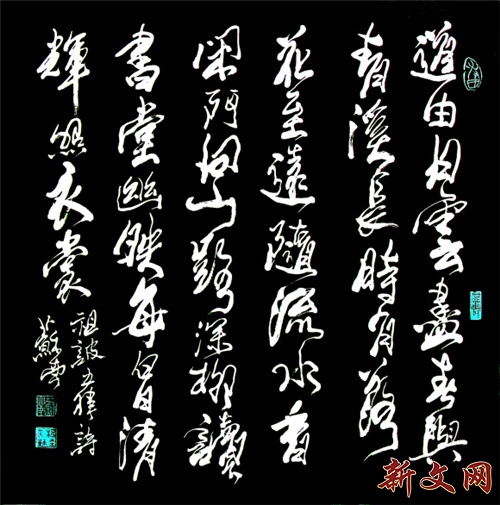 道由白雲盡春與
青溪長時有落
花至遠隨流水香
閑門向山路深柳讀
書堂幽映每白日清
輝照衣裳
祖詠五律詩
新文网